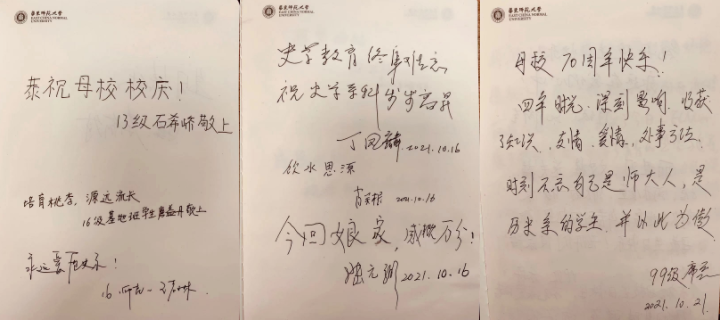 華東師範大學
EAST CHINA NORMAL
UNIVERSITY
恭祝母校校庆！
13级石希峤敬上
培育桃李，源远流长
16级基地班学生
永远爱历史系！
華東師範大學
EAST CHINA NORMAL
UNIVERSITY
史学教育
祝史学系科步步高昇
2021.10.16
饮水思源
2021.10.16
今回娘家，感慨万分！
2021.10.16
華東師範大學
EAST CHINA NORMAL
UNIVERSITY
母校 70周年快乐！
四年时光，深刻影响，收获
知识、友情、爱情、处事方法，
时刻不忘自己是师大人，是
历史系的学生，并以此为傲
99级
2021.10.21